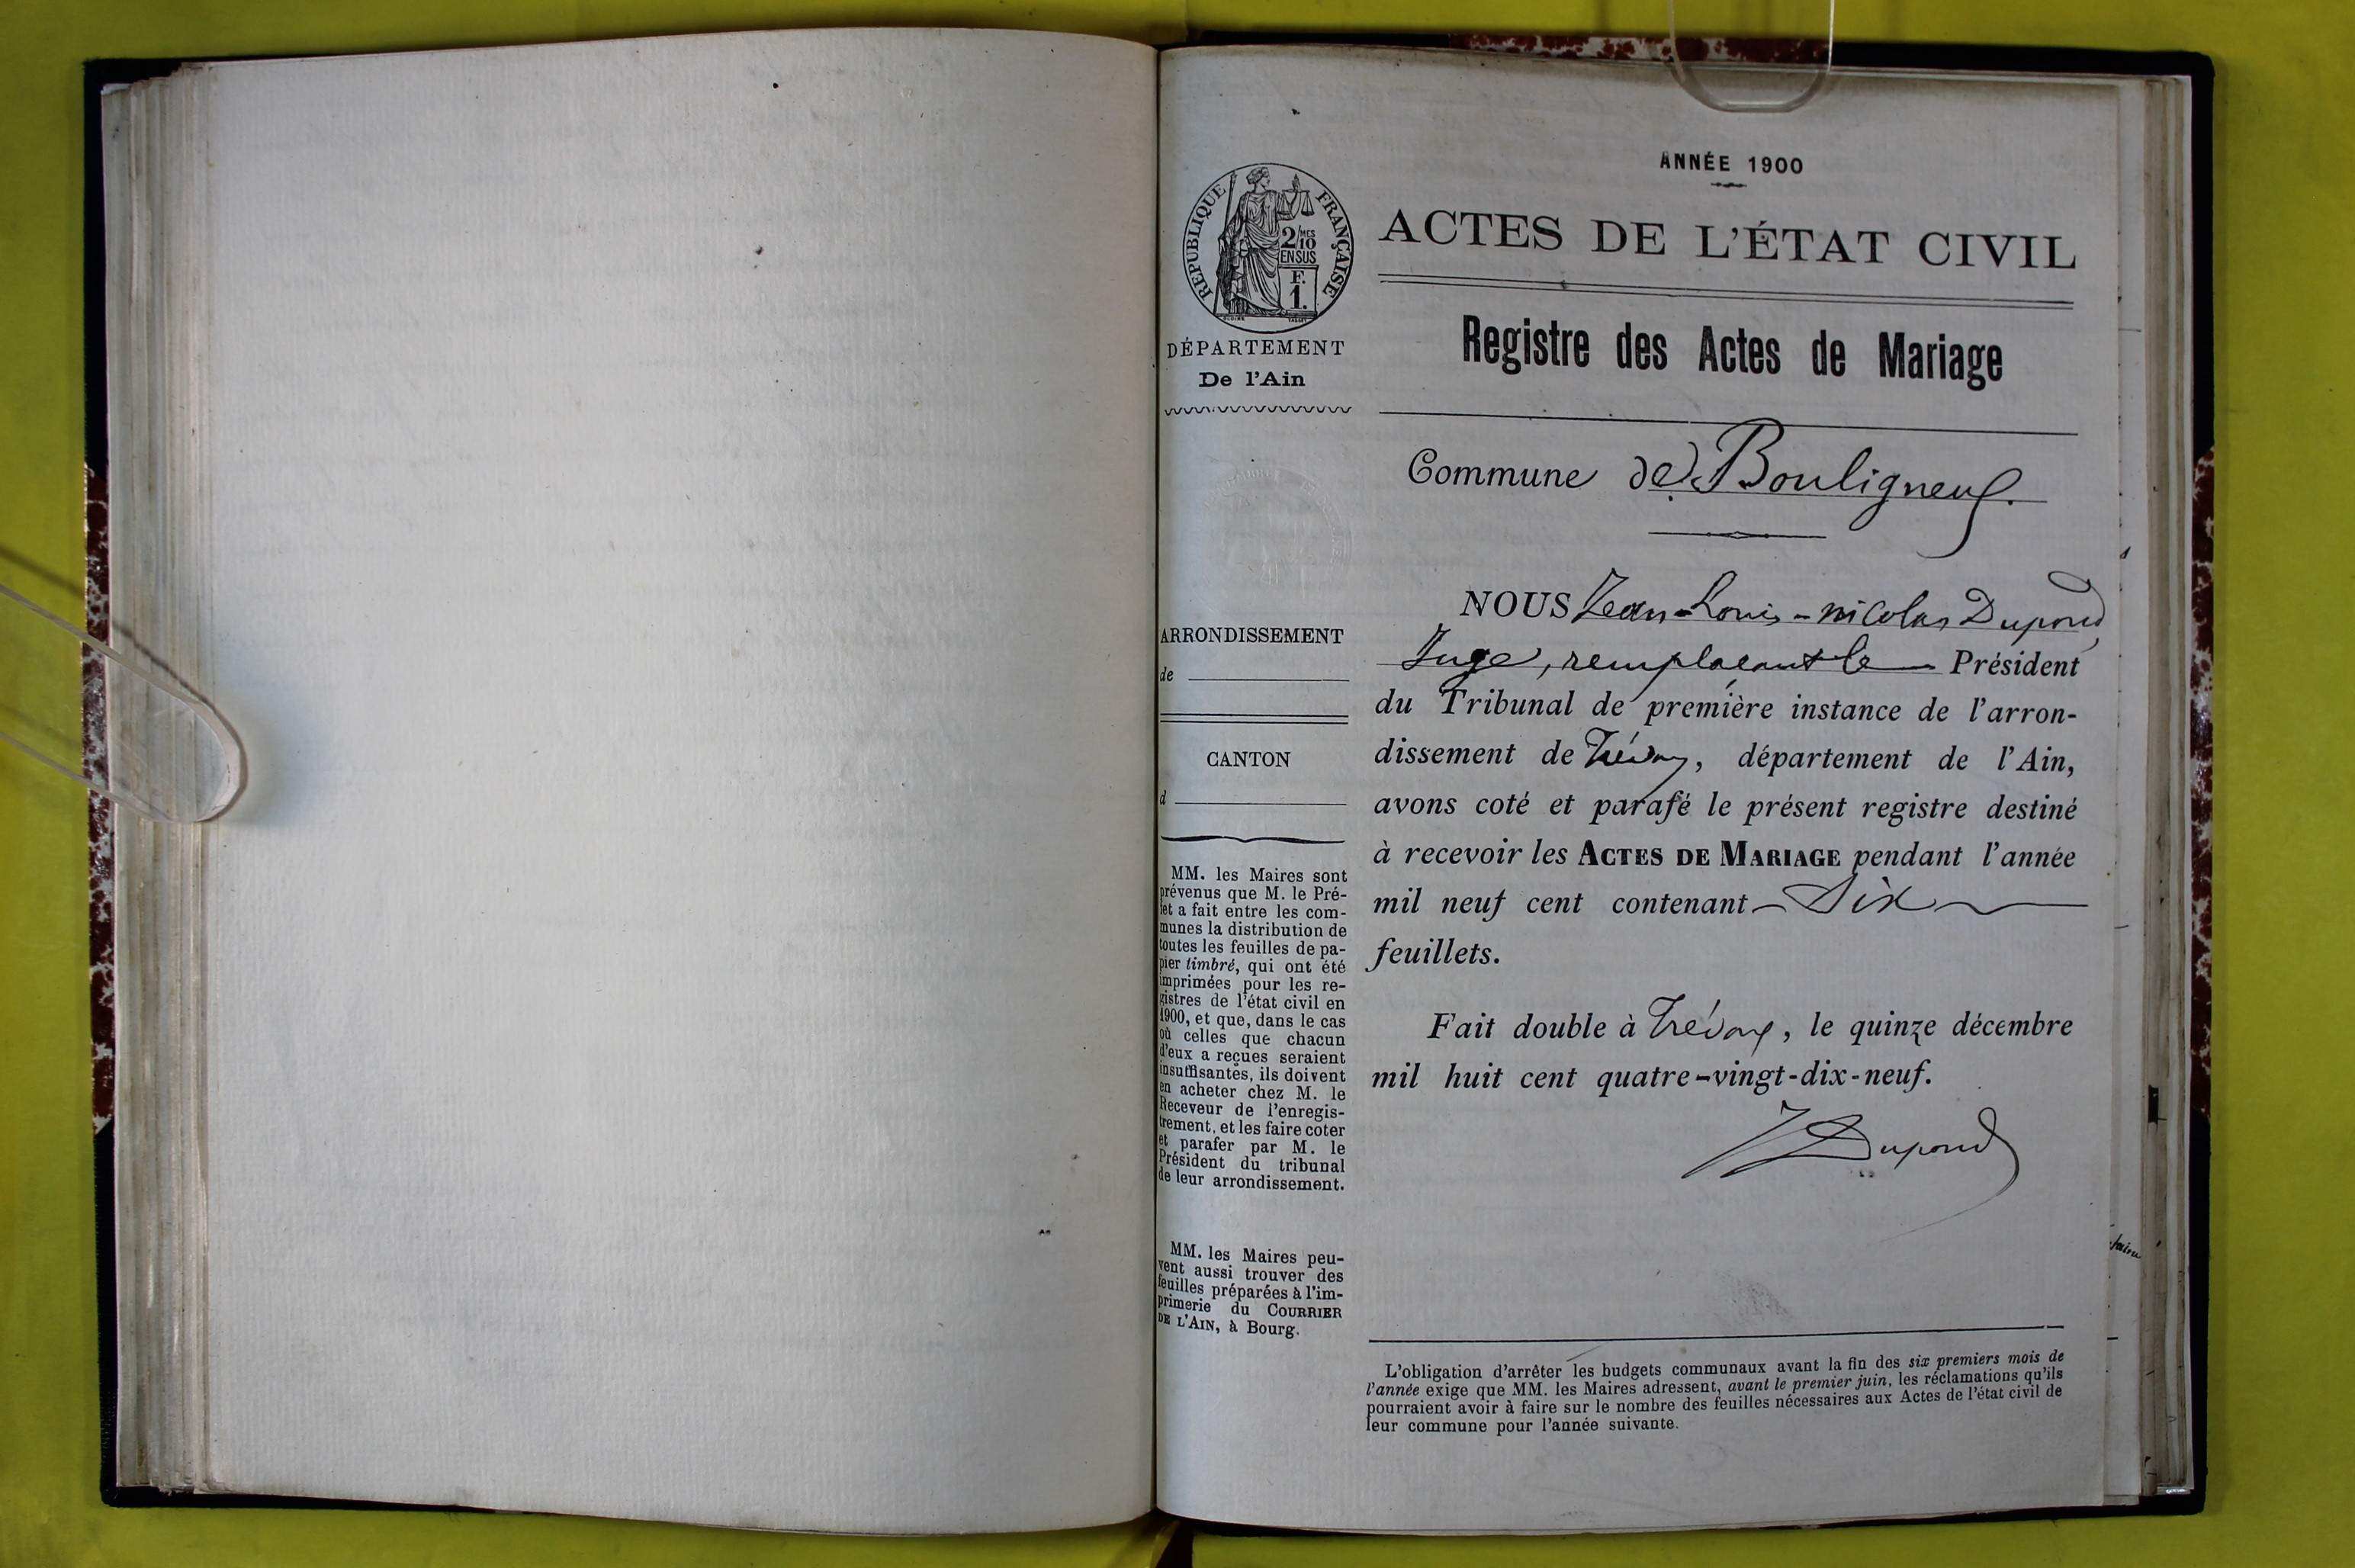 ANNÉE 1900
ACTES DE L'ÉTAT CIVIL
Registre des Actes de Mariage
Commune de Bouligneux.
RÉPUBLIQUE FRANÇAISE
2/10 MES
EN SUS
F.
1.
DÉPARTEMENT
De l'Ain
ARRONDISSEMENT
de
CANTON
d
MM. les Maires sont
prévenus que M. le Pré-
fet a fait entre les com-
munes la distribution de
toutes les feuilles de pa-
pier timbré, qui ont été
imprimées pour les re-
gistres de l'état civil en
1900, et que, dans le cas
où celles que chacun
d'eux a reçues seraient
insuffisantes, ils doivent
en acheter chez M. le
Receveur de l'enregis-
trement, et les faire coter
et parafer par M. le
Président du tribunal
de leur arrondissement.
MM. les Maires peu-
vent aussi trouver des
feuilles préparées à l'im-
primerie du COURRIER
DE L'AIN, à Bourg.
NOUS Jean-Louis-Nicolas Dupond,
Juge, remplaçant le Président
du Tribunal de première instance de l'arron-
dissement de Trévoux, département de l'Ain,
avons coté et parafé le présent registre destiné
à recevoir les ACTES DE MARIAGE pendant l'année
mil neuf cent contenant Six
feuillets.
Fait double à Trévoux, le quinze décembre
mil huit cent quatre-vingt-dix-neuf.
Dupond
L'obligation d'arrêter les budgets communaux avant la fin des six premiers mois de
l'année exige que MM. les Maires adressent, avant le premier juin, les réclamations qu'ils
pourraient avoir à faire sur le nombre des feuilles nécessaires aux Actes de l'état civil de
leur commune pour l'année suivante.